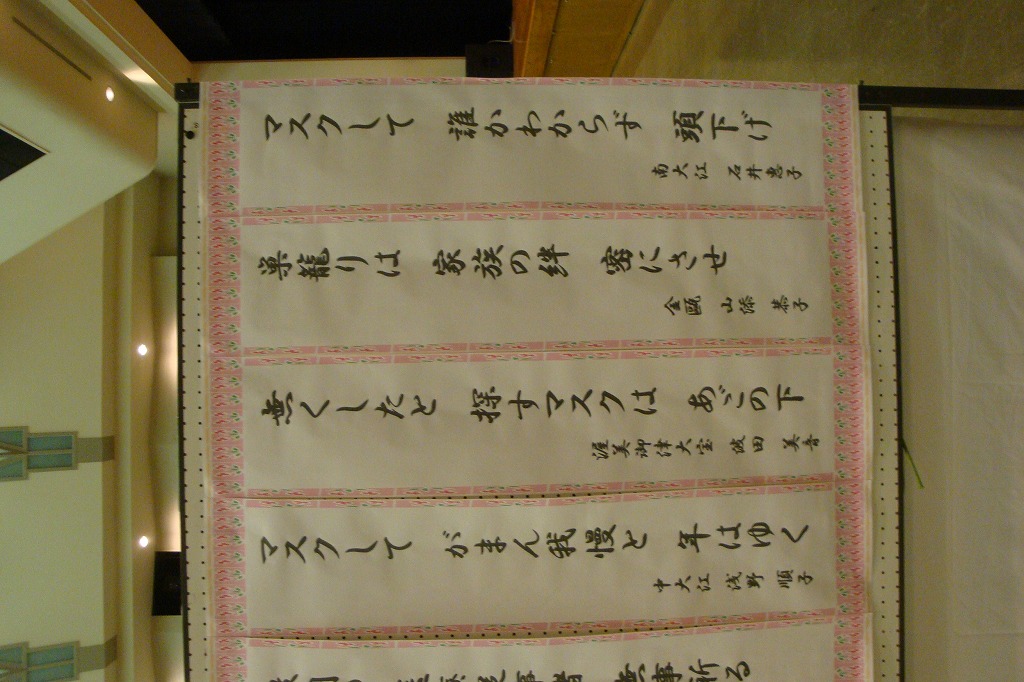 マスクして 誰かわからず 頭下げ
南大江 石井惠子
巣籠りは 家族の絆 密にさせ
金甌 山添 恭子
無くしたと 探すマスクは あごの下
渥美御津大宝 波田 美音
マスクして がまん我慢と 年はゆく
中大江 浅野 順子
従事者 無事祈る